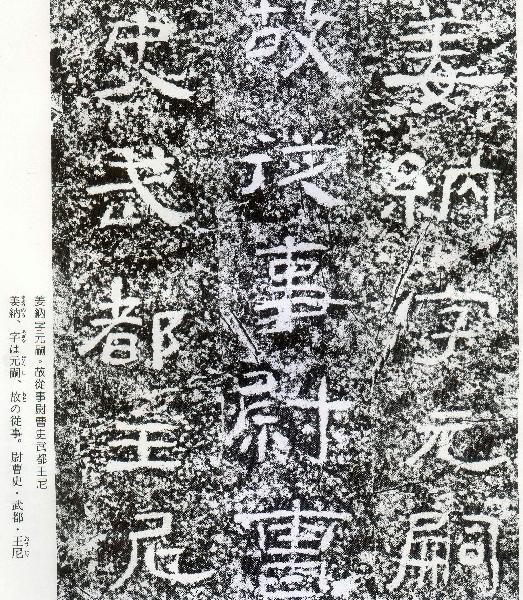 姜納字元嗣
故從事尉曹
史武都王尼
姜納字元嗣。故從事尉曹史武都王尼
姜納、字は元嗣、故の從事。尉曹史・武都・王尼